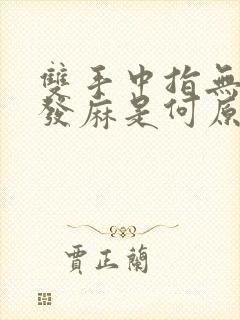 雙手中指無
發麻是何原
賈正蘭